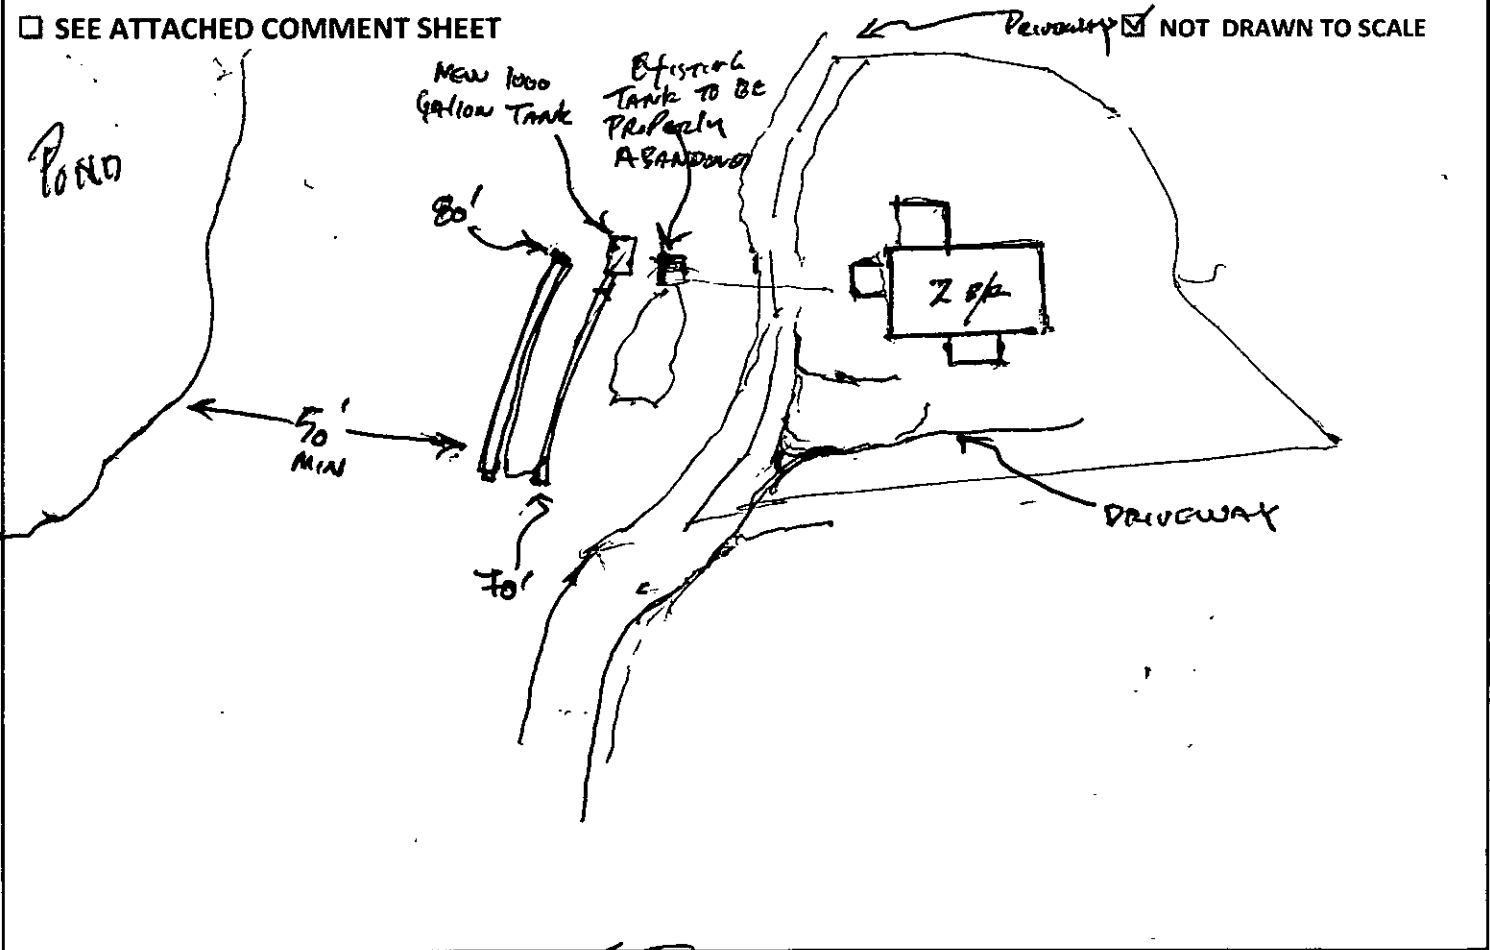 SEE ATTACHED COMMENT SHEET
Driveway
NOT DRAWN TO SCALE
NEW 1000
Gallon TANK
Existing
TANK TO BE
Properly
ABANDONED
POND
80'
2 B/R
50'
MIN
70'
DRIVEWAY